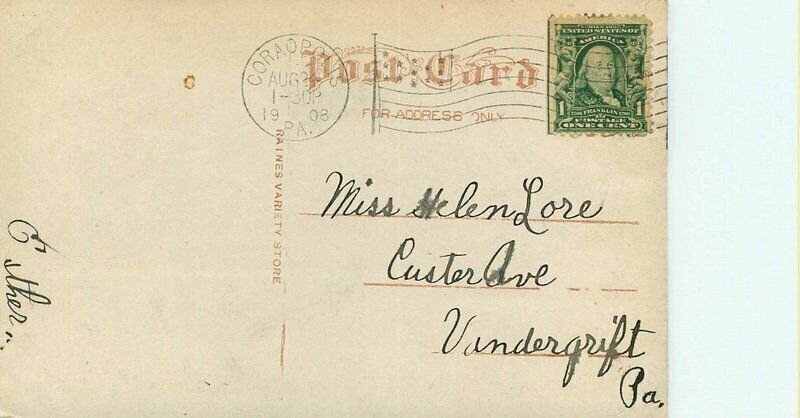 CORAOPOLIS
AUG
1-30P
1908
PA.
Post Card
FOR ADDRESS ONLY
SERIES 1902
UNITED STATES OF
AMERICA
1706 FRANKLIN 1790
POSTAGE
1 ONE CENT 1
RAINES VARIETY STORE
Miss Helen Lore
Custer Ave
Vandergrift
Pa.
Esther..